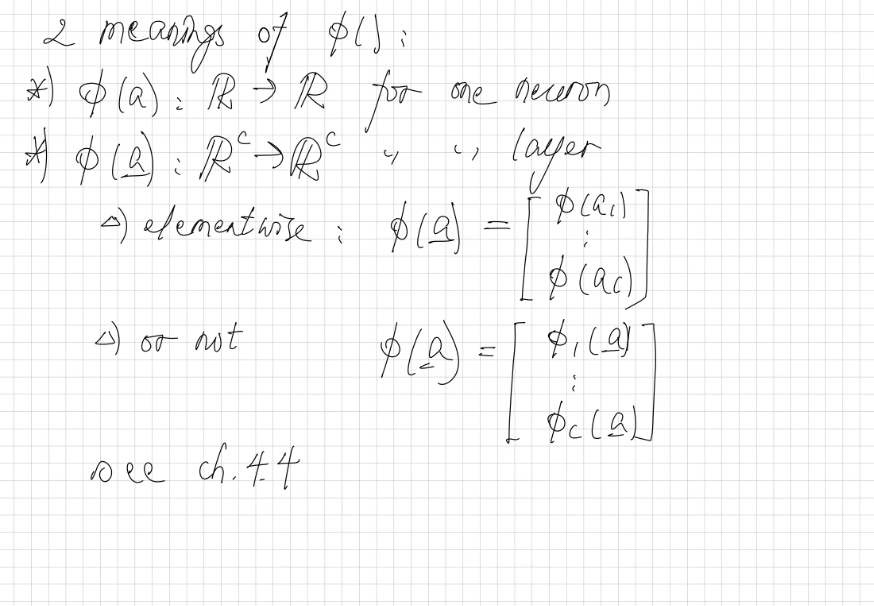 2 meanings of ϕ():
*) ϕ(a): ℝ → ℝ for one neuron
*) ϕ(a̲): ℝᶜ → ℝᶜ " " layer
△) elementwise: ϕ(a̲) = [ϕ(a₁) ⋮ ϕ(a_C)]
△) or not ϕ(a̲) = [ϕ₁(a̲) ⋮ ϕ_C(a̲)]
see ch. 4.4